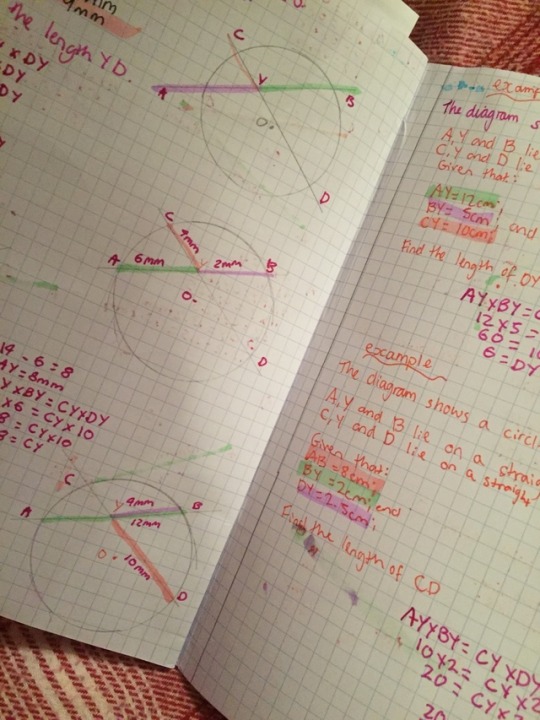 9mm
the length YD.
× DY
DY
DY
C
A
Y
B
O
D
C
A
6mm
4mm
2mm
B
O
D
14 - 6 = 8
AY = 8mm
Y×BY = CY×DY
×6 = CY×10
8 = CY×10
= CY
C
Y
9mm
B
A
12mm
O
10mm
D
The diagram s
A, Y and B lie
C, Y and D lie
Given that:
AY = 12cm;
BY = 5cm; and
CY = 10cm;
Find the length of DY
AY×BY =
12×5 =
60 = 10
6 = DY
example
The diagram shows a circl
A, Y and B lie on a straig
C, Y and D lie on a straight
Given that:
AB = 8cm;
BY = 2cm; and
DY = 2.5cm;
Find the length of CD
AY×BY = CY×DY
10×2 = CY×
20 = CY×2
20